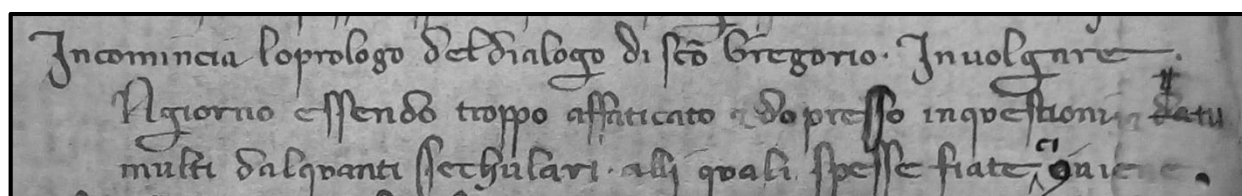 Incomincia loprologo del dialogo di sco Gregorio. Inuolgare.
N giorno essendo troppo affaticato dopresso in questioni
multi dalquanti sechulari. alli quali spesse fiate